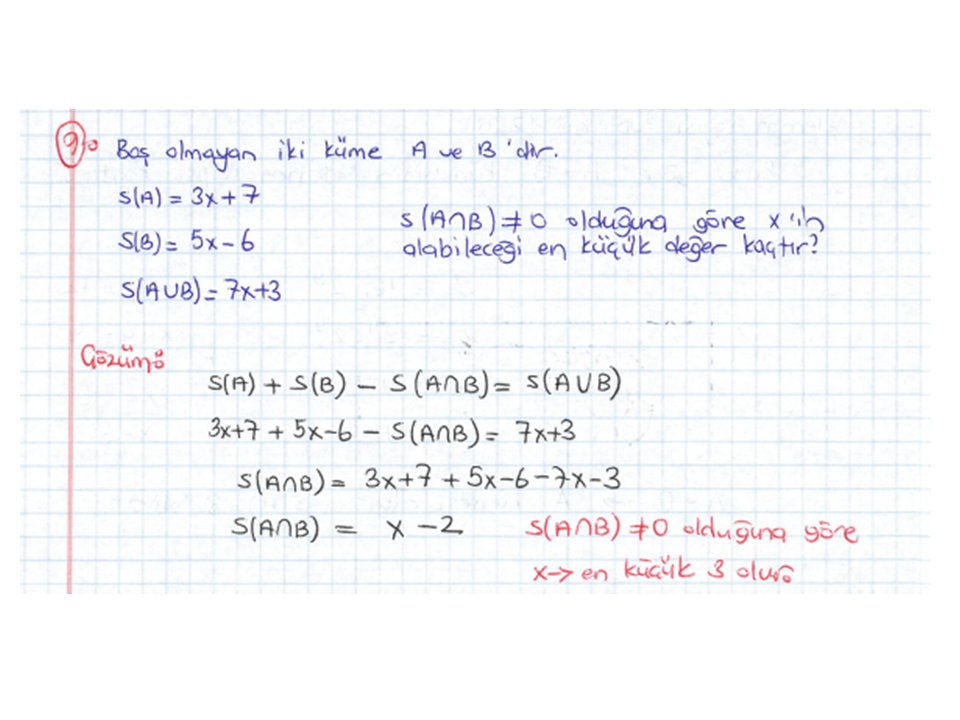 9) Boş olmayan iki küme A ve B 'dir.
s(A) = 3x+7
s(B) = 5x-6
s(A∪B) = 7x+3
s(A∩B) ≠ 0 olduğuna göre x'in
alabileceği en küçük değer kaçtır?
Çözüm:
s(A) + s(B) - s(A∩B) = s(A∪B)
3x+7 + 5x-6 - s(A∩B) = 7x+3
s(A∩B) = 3x+7 + 5x-6-7x-3
s(A∩B) = x-2
s(A∩B) ≠ 0 olduğuna göre
x→ en küçük 3 olur.